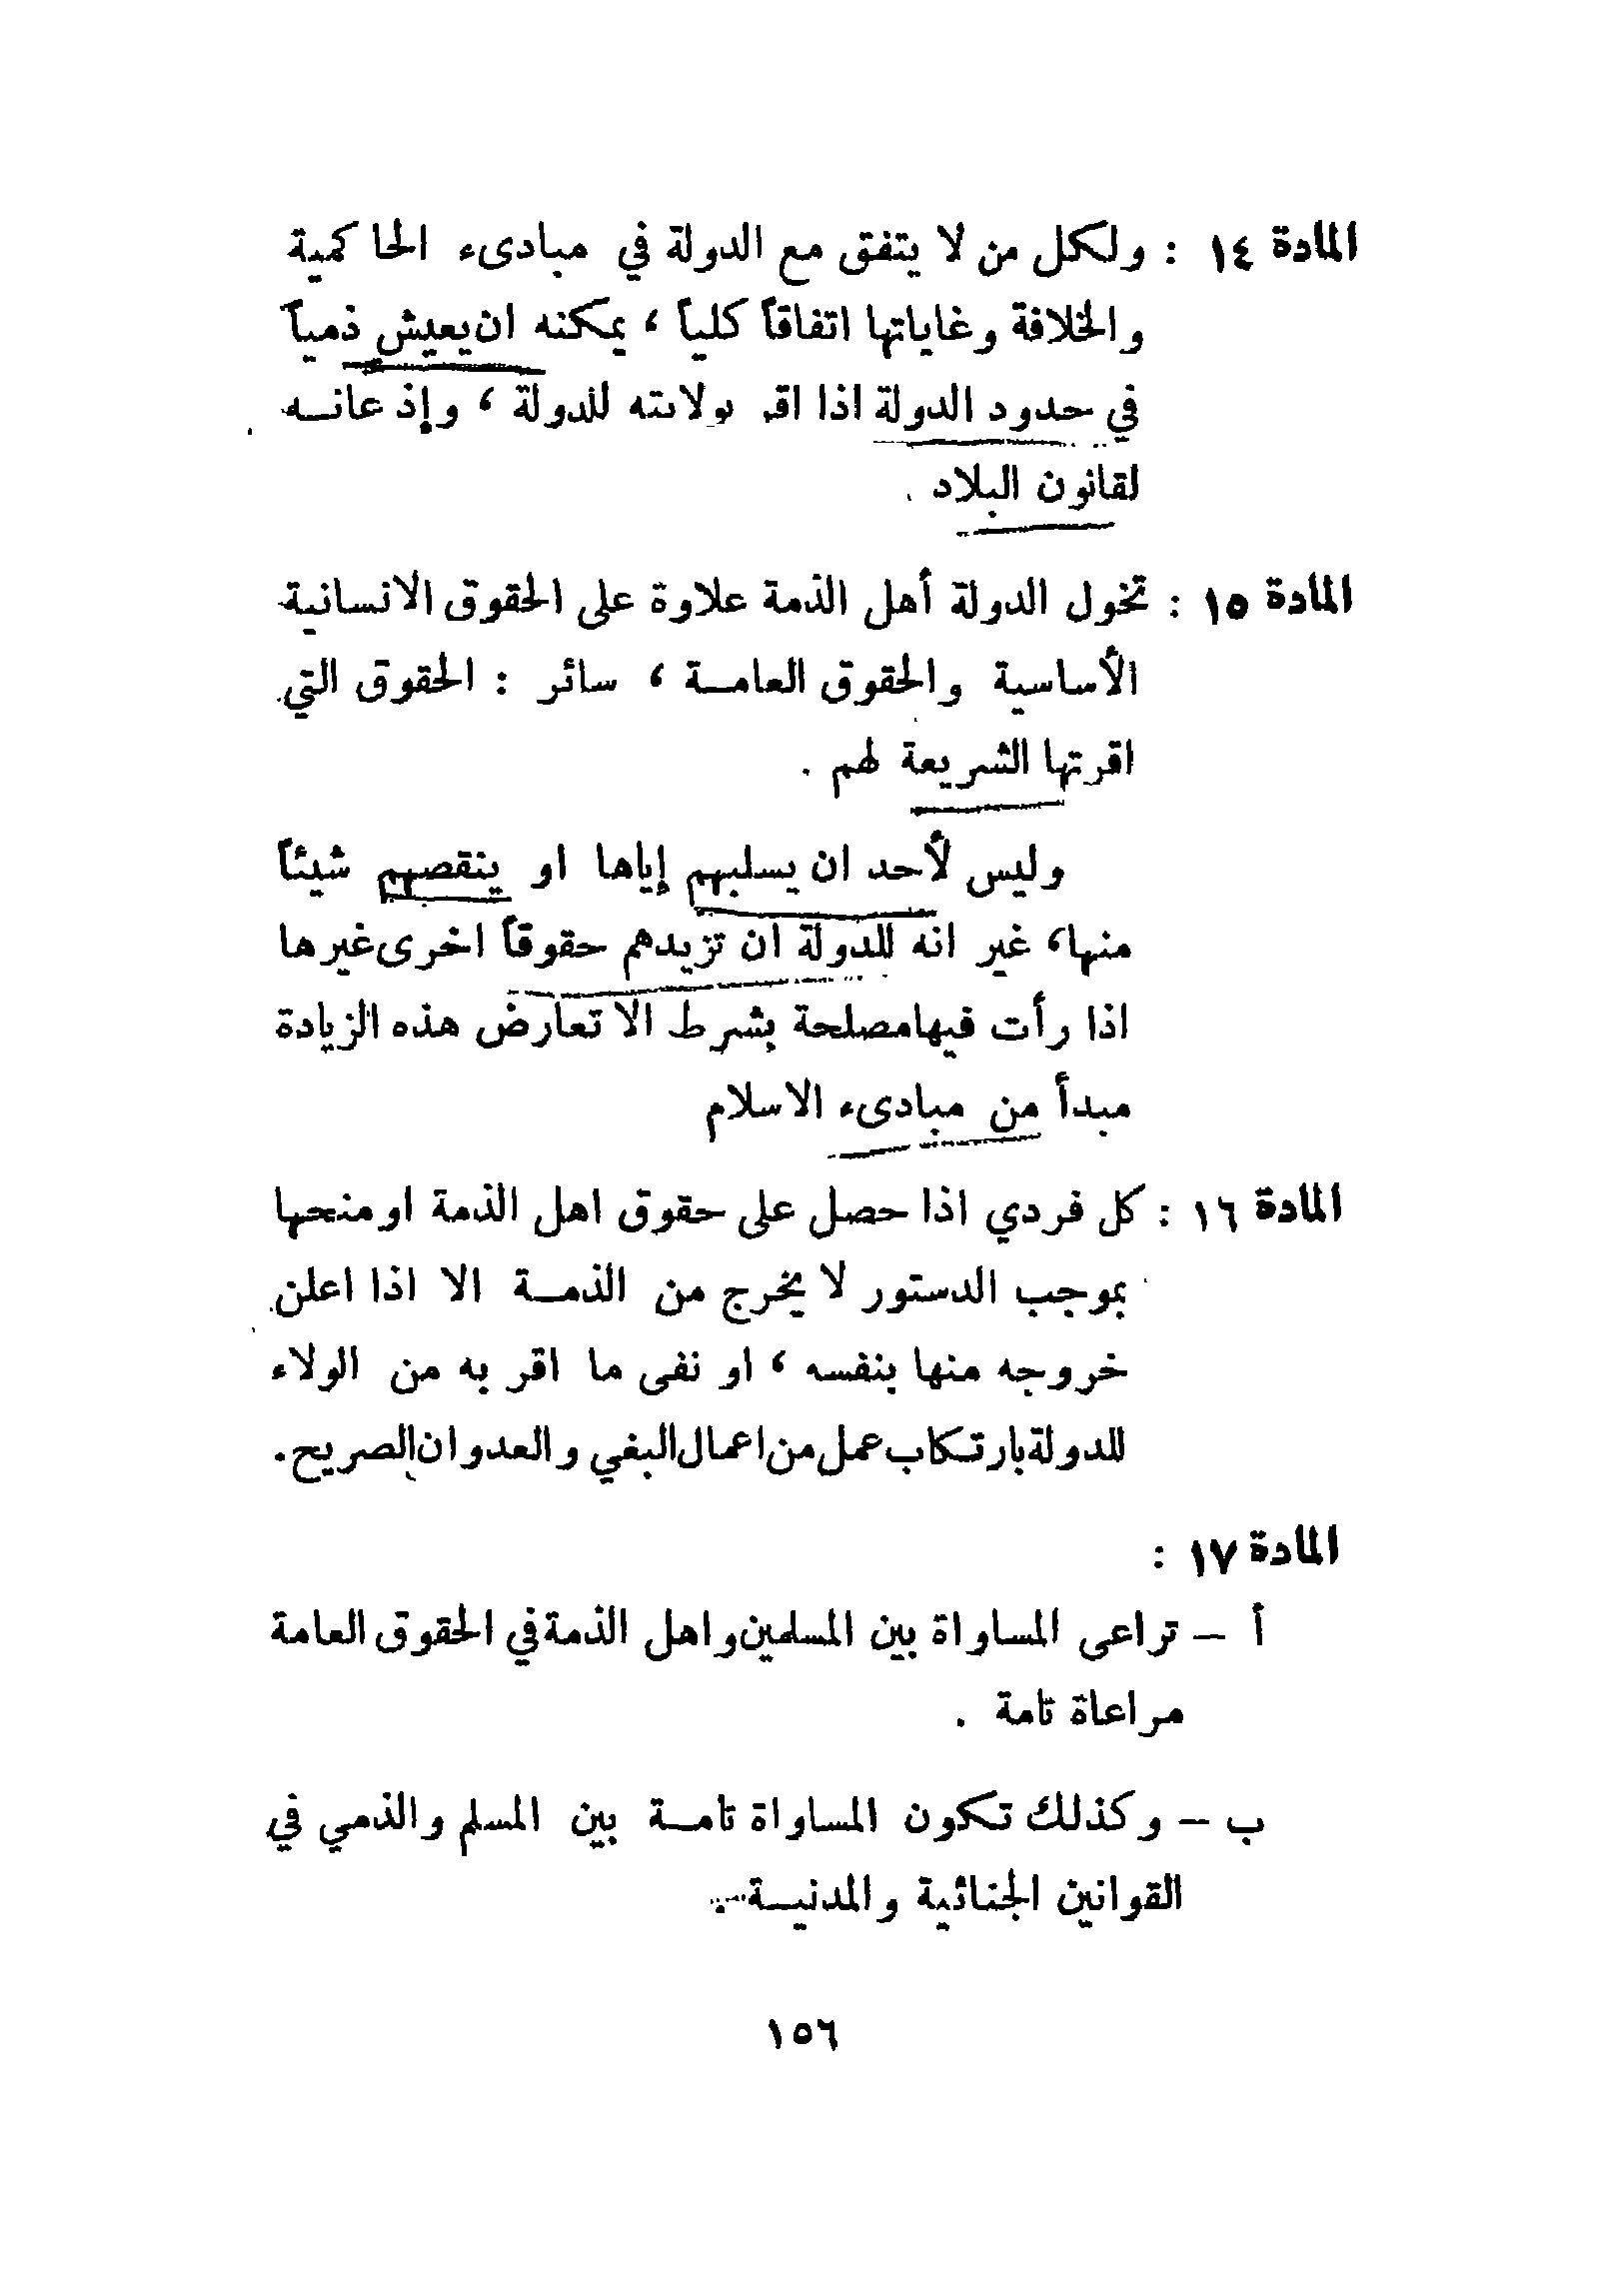 المادة ١٤ : ولكل من لا يتفق مع الدولة في مبادىء الحاكمية
والخلافة وغاياتها اتفاقاً كلياً ، يمكنه ان يعيش ذمياً
في حدود الدولة اذا اقر بولايته للدولة ، وإذعانـه
لقانون البلاد .
المادة ١٥ : تخول الدولة أهل الذمة علاوة على الحقوق الانسانية
الأساسية والحقوق العامـة ، سائر : الحقوق التي
اقرتها الشريعة لهم .
وليس لأحد ان يسلبهم إياها او ينقصهم شيئاً
منها، غير انه للدولة ان تزيدهم حقوقاً اخرى غيرها
اذا رأت فيها مصلحة بشرط الا تعارض هذه الزيادة
مبدأ من مبادىء الاسلام
المادة ١٦ : كل فردي اذا حصل على حقوق اهل الذمة او منحها
بموجب الدستور لا يخرج من الذمـة الا اذا اعلن
خروجه منها بنفسه ، او نفى ما اقر به من الولاء
للدولة بارتكاب عمل من اعمال البغي والعدوان الصريح.
المادة ١٧ :
أ – تراعى المساواة بين المسلمين واهل الذمة في الحقوق العامة
مراعاة تامة .
ب – وكذلك تكون المساواة تامـة بين المسلم والذمي في
القوانين الجنائية والمدنيـة .
١٥٦